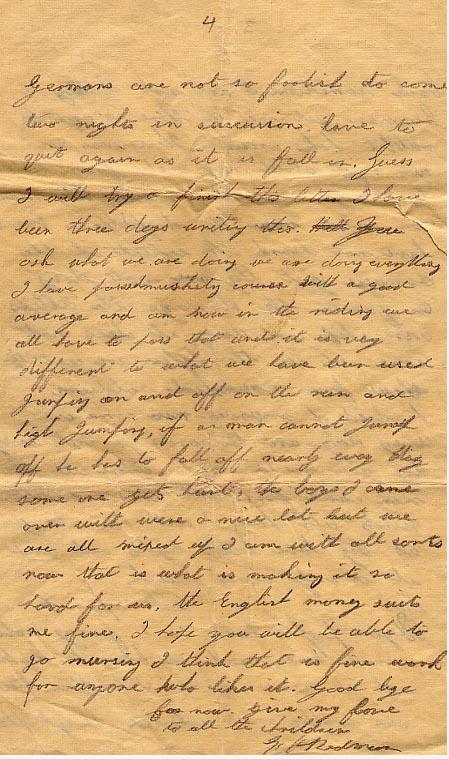 4
Germans are not so foolish to come
two nights in succession. have to
quit again as it is fall in. Guess
I will try a finish this letter I have
been three days writing this. You
ask what we are doing we are doing everything
I have passed musketry course with a good
average and am now in the riding we
all have to pass that and it is very
different to what we have been used
Jumping on and off on the run and
high Jumping, if a man cannot Jump
off he has to fall off nearly every day
some one gets hurt. the boys I came
over with were a nice lot but we
are all mixed up I am with all sorts
now that is what is making it so
hard for us. the English money suits
me fine. I hope you will be able to
go nursing I think that is fine work
for anyone who likes it. Good bye
for now give my love
to all the children
Redman